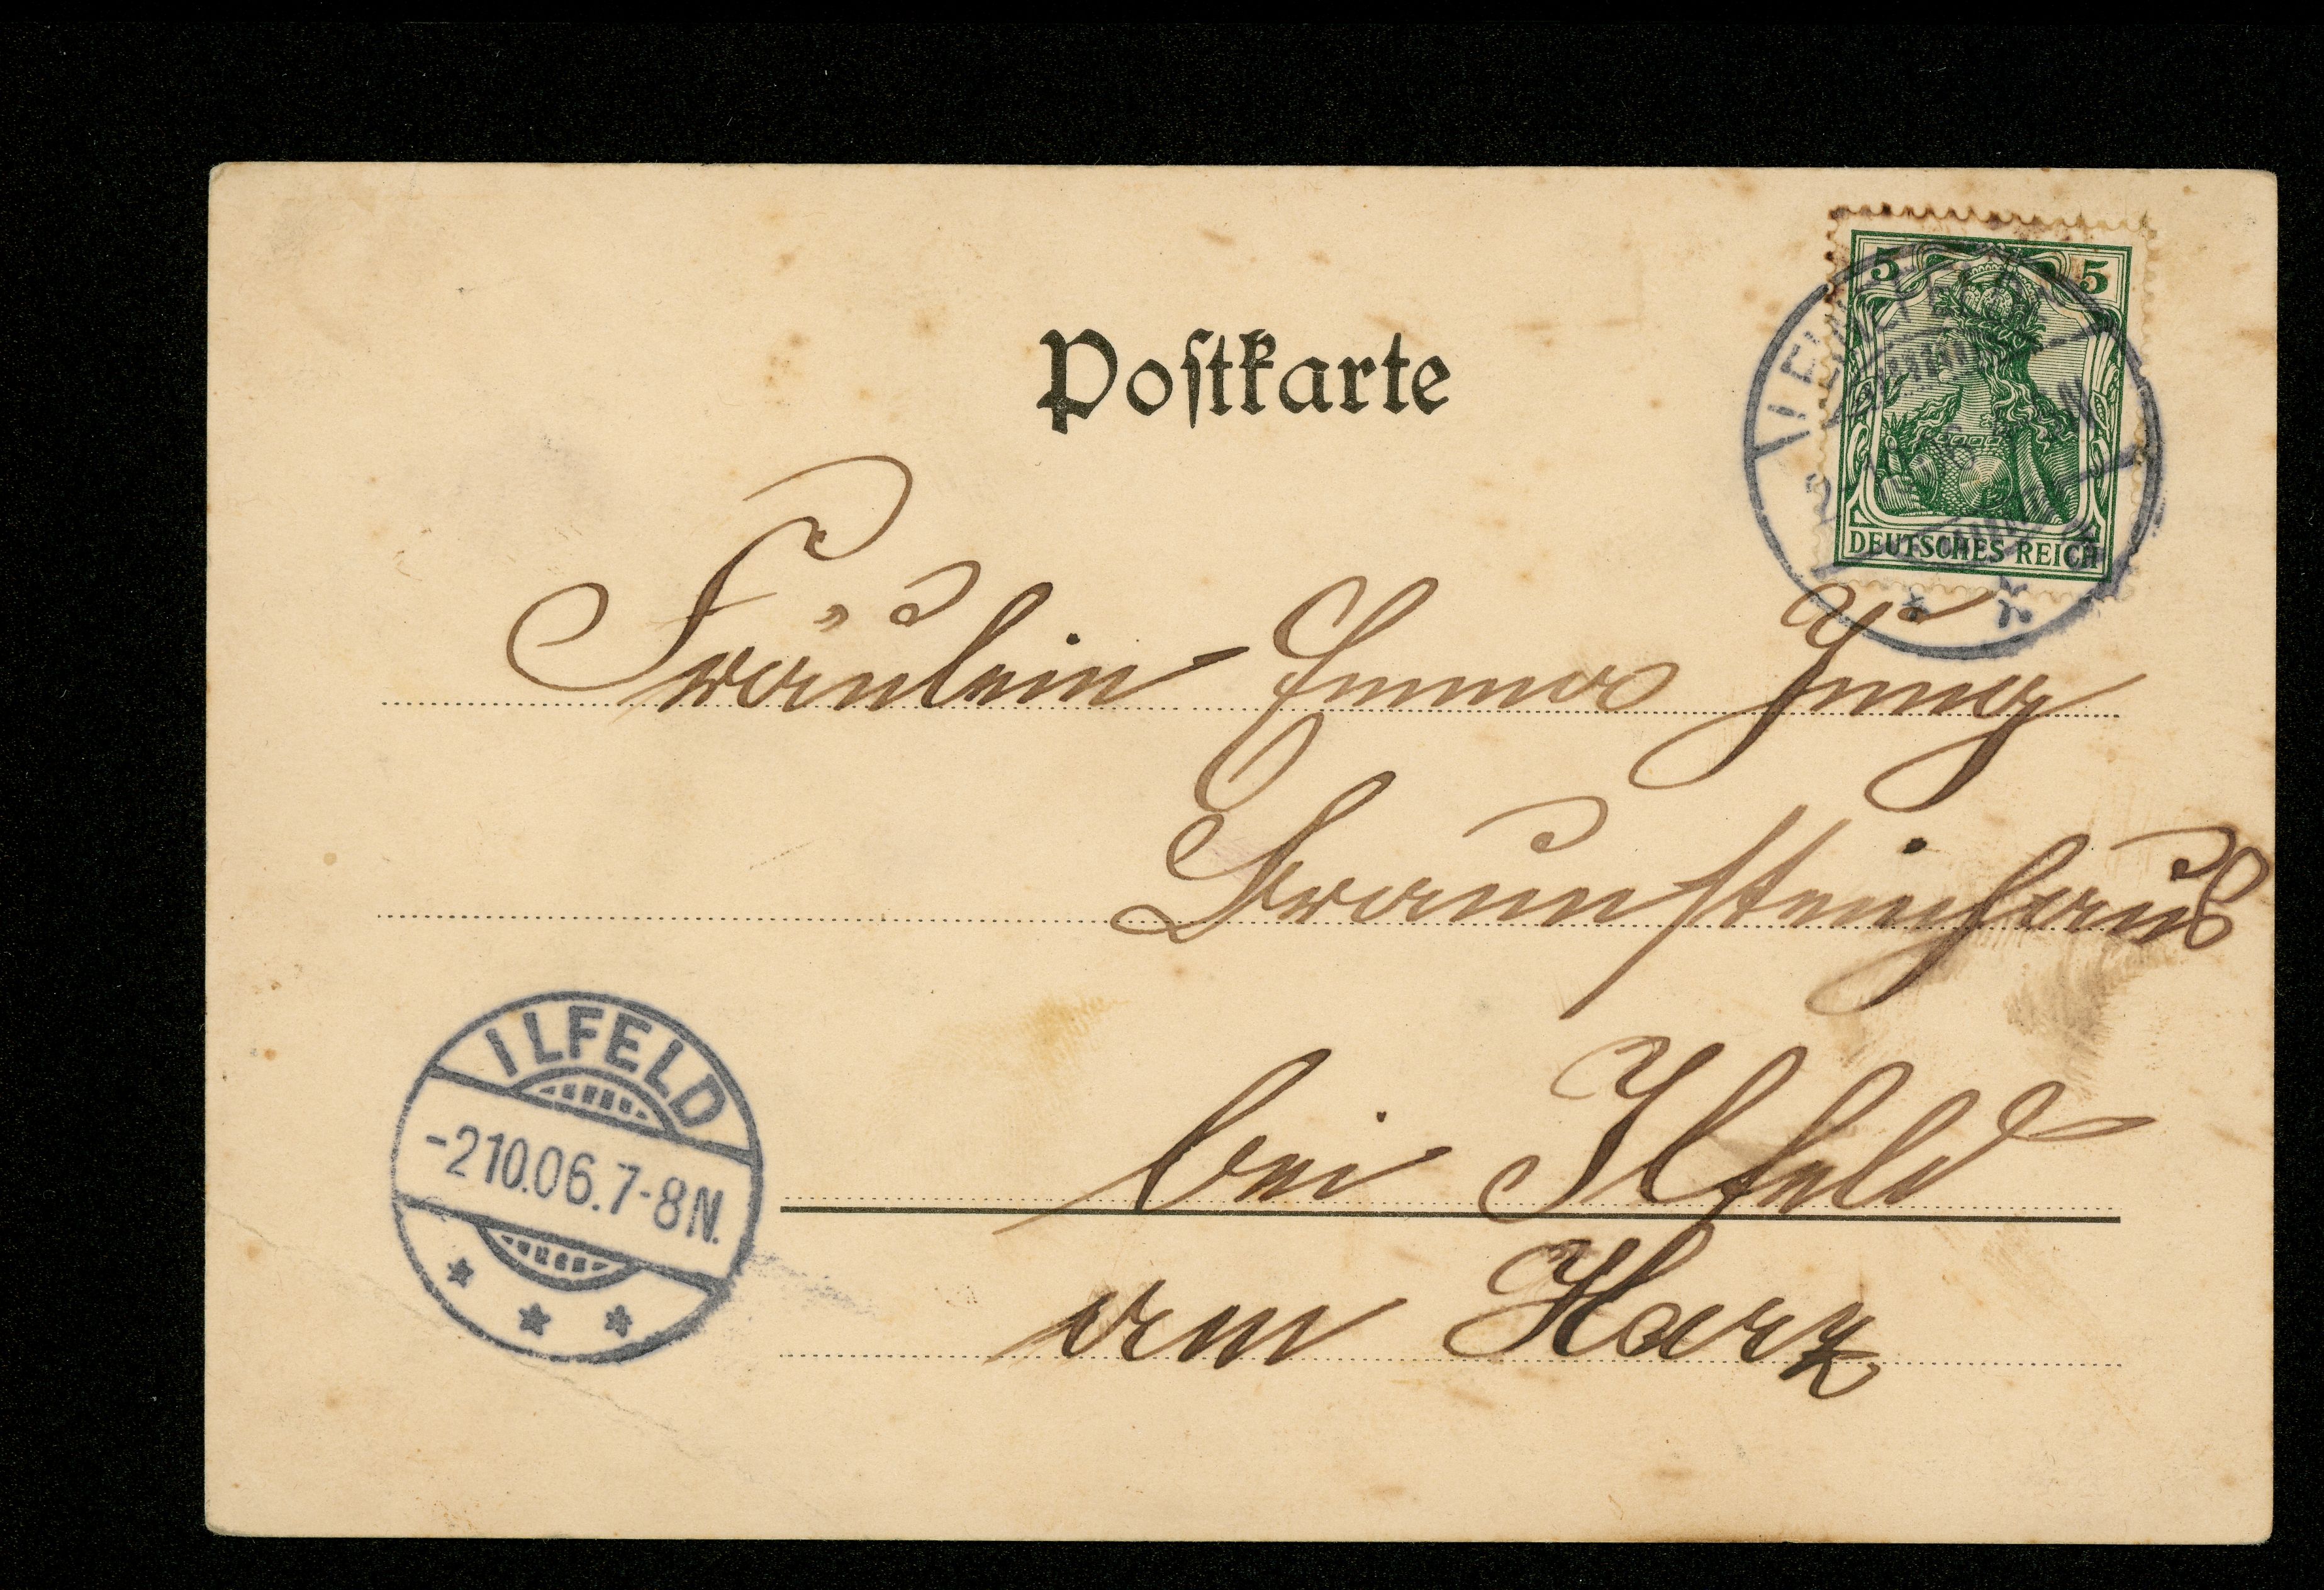 Postkarte
5 5
DEUTSCHES REICH
Fräulein Emma Jung
Braunsteinhaus
ILFELD
-2.10.06.7-8N.
bei Ilfeld
am Harz